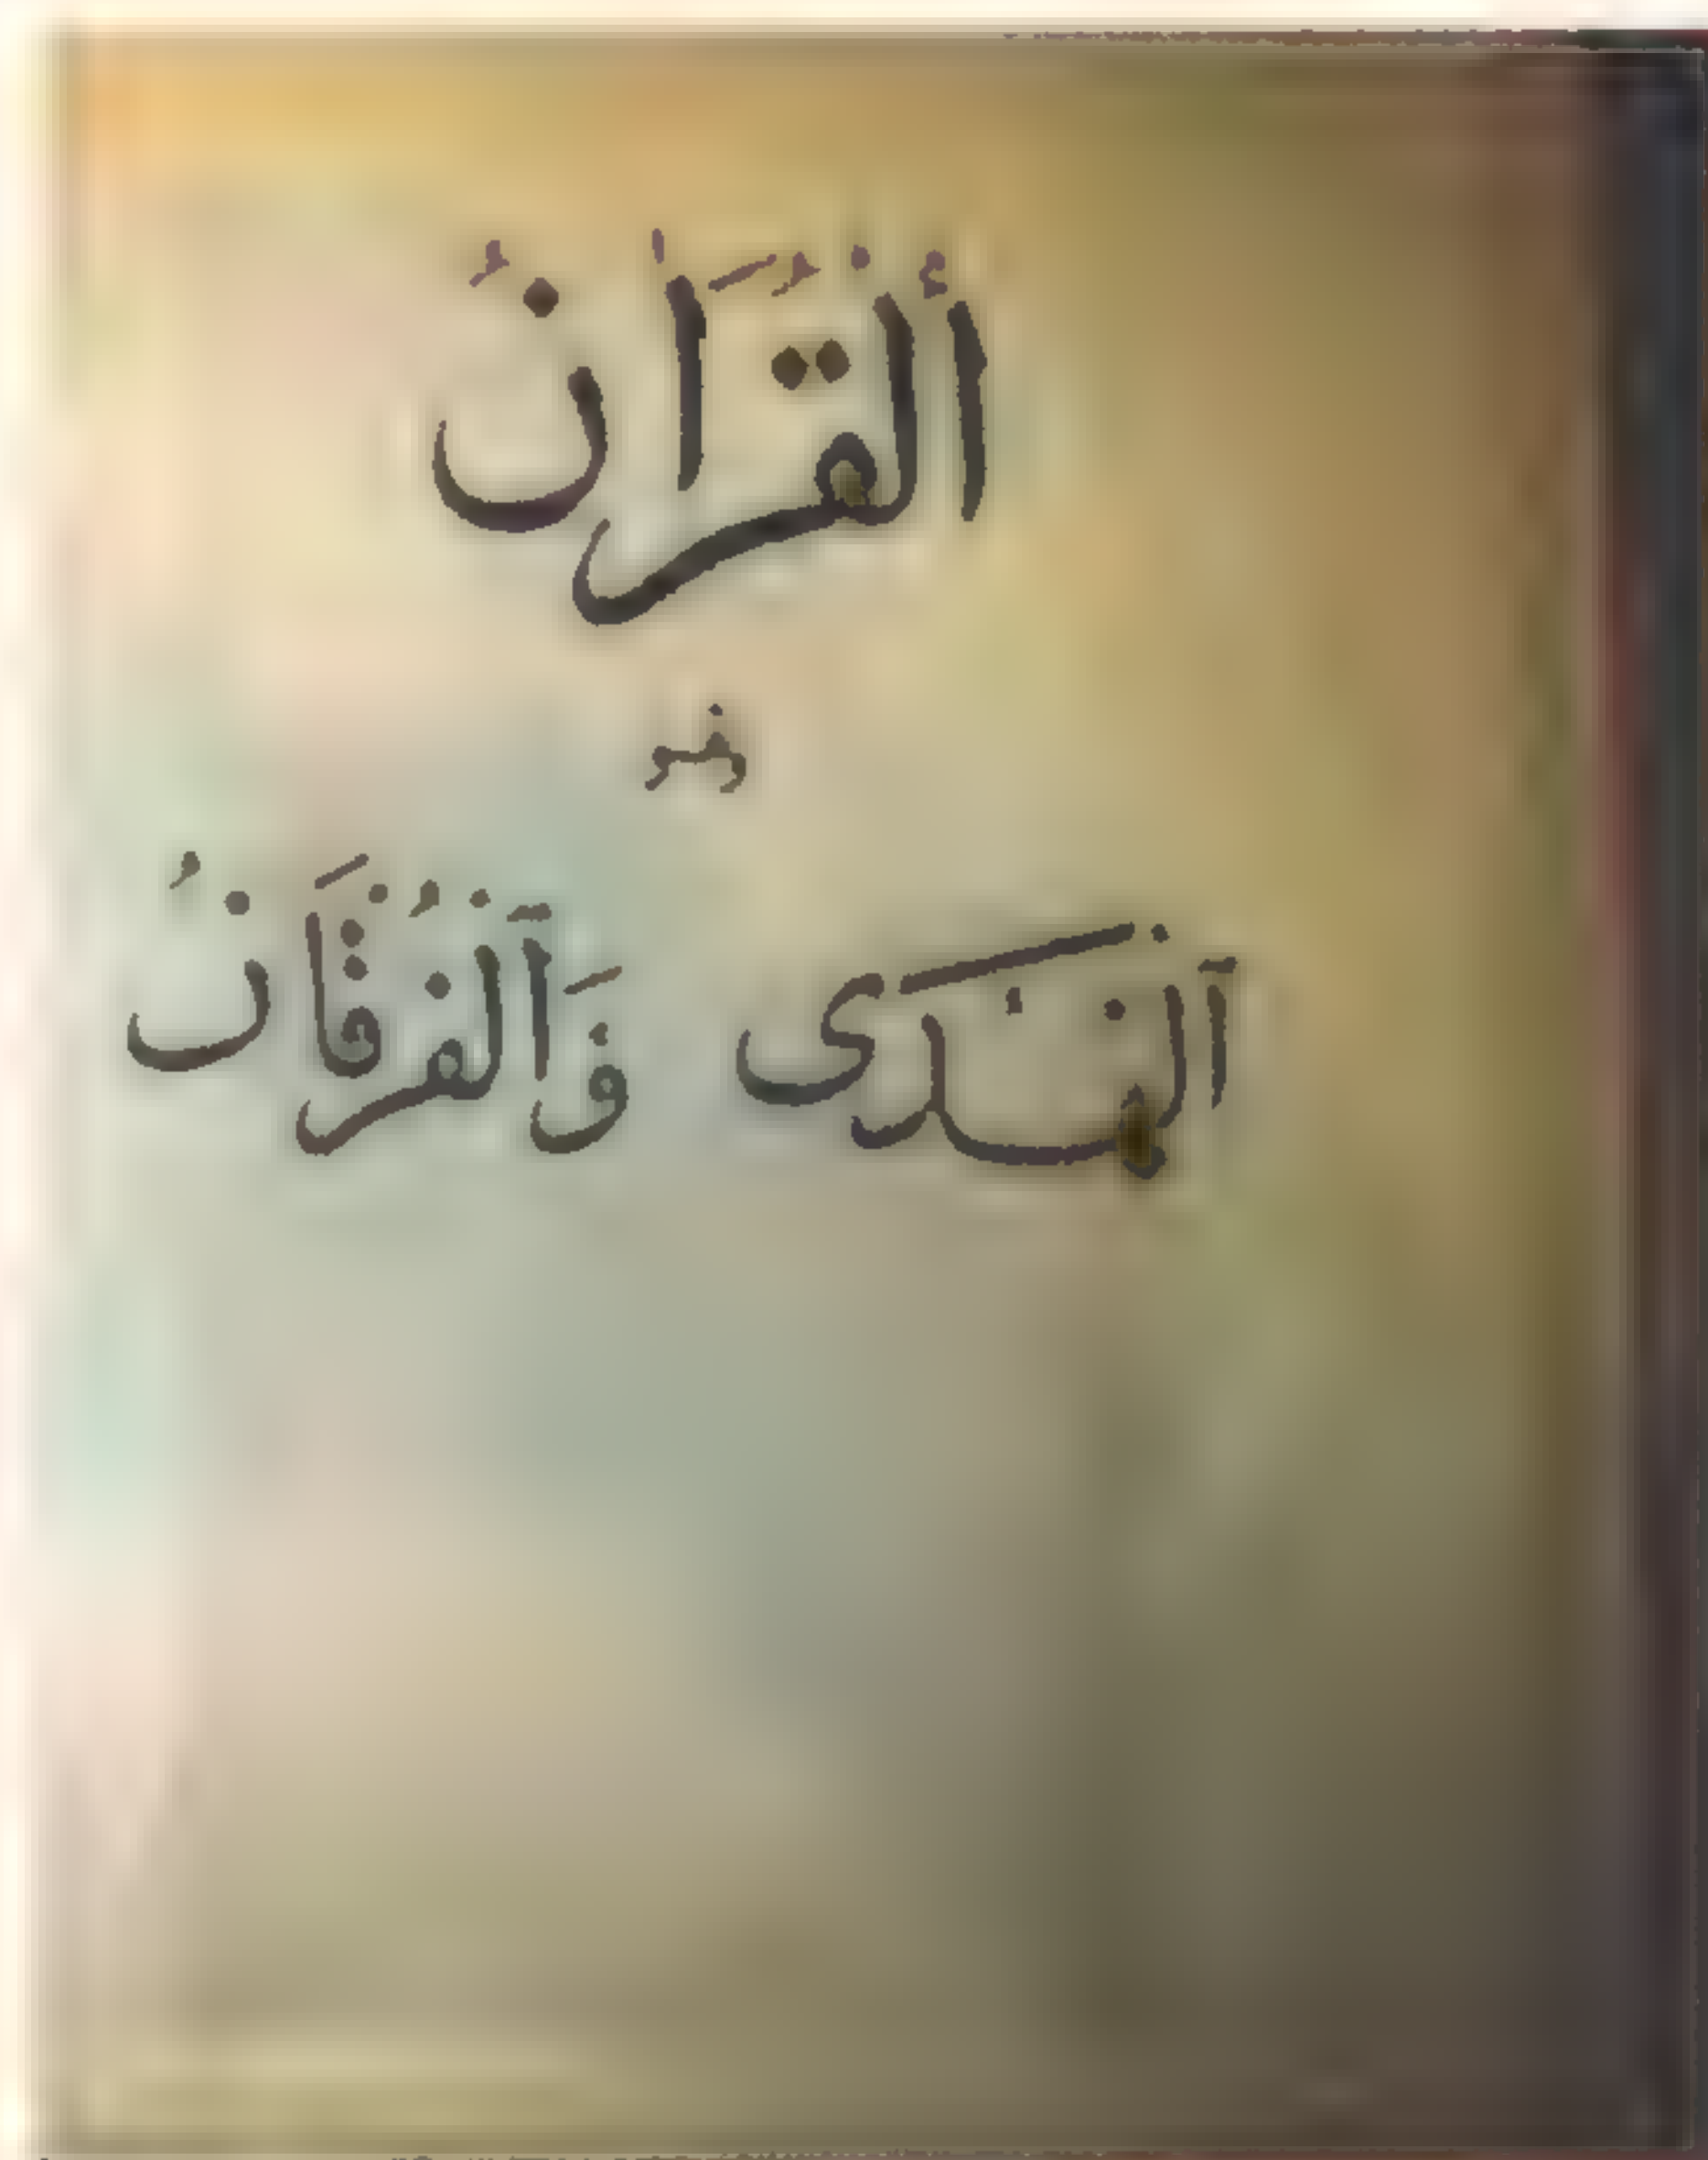 أَلْقُرَاٰنُ
وهو
آلْهُدَى وَآلْفُرْقَانُ